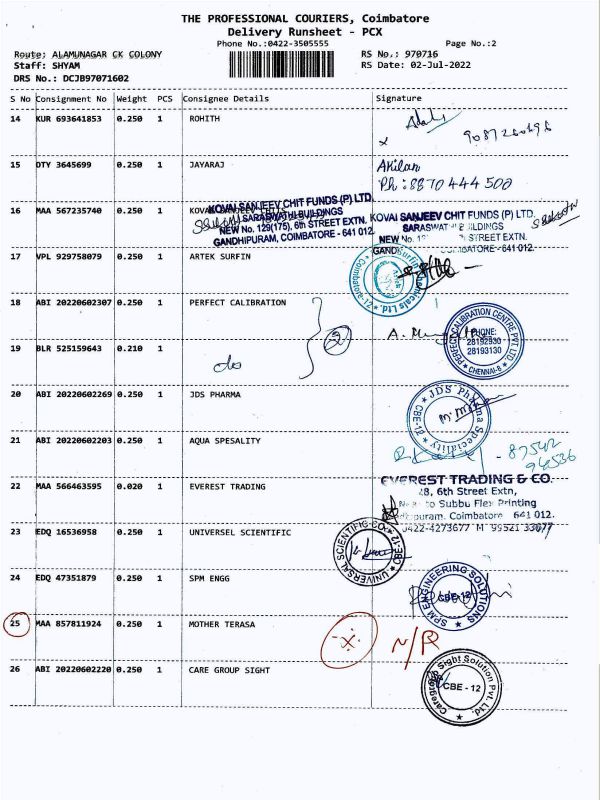 THE PROFESSIONAL COURIERS, Coimbatore
Delivery Runsheet - PCX
Phone No.:0422-3505555 Page No.:2
Route: ALAMUNAGAR CK COLONY RS No.: 970716
Staff: SHYAM RS Date: 02-Jul-2022
DRS No.: DCJB97071602
S No Consignment No Weight PCS Consignee Details Signature
14 KUR 693641853 0.250 1 ROHITH
15 DTY 3645699 0.250 1 JAYARAJ Akilan
Ph: 8870 444 500
16 MAA 567235740 0.250 1
KOVAI SANJEEV CHIT FUNDS (P) LTD.
SARASWATHI BUILDINGS
NEW No. 129(175), 6th STREET EXTN,
GANDHIPURAM, COIMBATORE - 641 012.
KOVAI SANJEEV CHIT FUNDS (P) LTD.
SARASWATHI BUILDINGS
NEW No. STREET EXTN.
COIMBATORE - 641 012.
17 VPL 929758079 0.250 1 ARTEK SURFIN
18 ABI 20220602307 0.250 1 PERFECT CALIBRATION 2
PERFECT CALIBRATION CENTRE PVT. LTD.
PHONE:
28192930
28193130
CHENNAI-8
19 BLR 525159643 0.210 1 do
20 ABI 20220602269 0.250 1 JDS PHARMA
JDS Pharma Speciality CBE-12
21 ABI 20220602203 0.250 1 AQUA SPESALITY
22 MAA 566463595 0.020 1 EVEREST TRADING
EVEREST TRADING & CO.
28, 6th Street Extn,
to Subbu Flex Printing
Coimbatore 641 012.
0422-4273677 M 99521 33077
23 EDQ 16536958 0.250 1 UNIVERSEL SCIENTIFIC
UNIVERSAL SCIENTIFIC CO. CBE-12
24 EDQ 47351879 0.250 1 SPM ENGG
SPM ENGINEERING SOLUTIONS CBE-12
25 MAA 857811924 0.250 1 MOTHER TERASA X N/R
26 ABI 20220602220 0.250 1 CARE GROUP SIGHT
Caregroup Sight Solution Pvt. Ltd.
CBE - 12